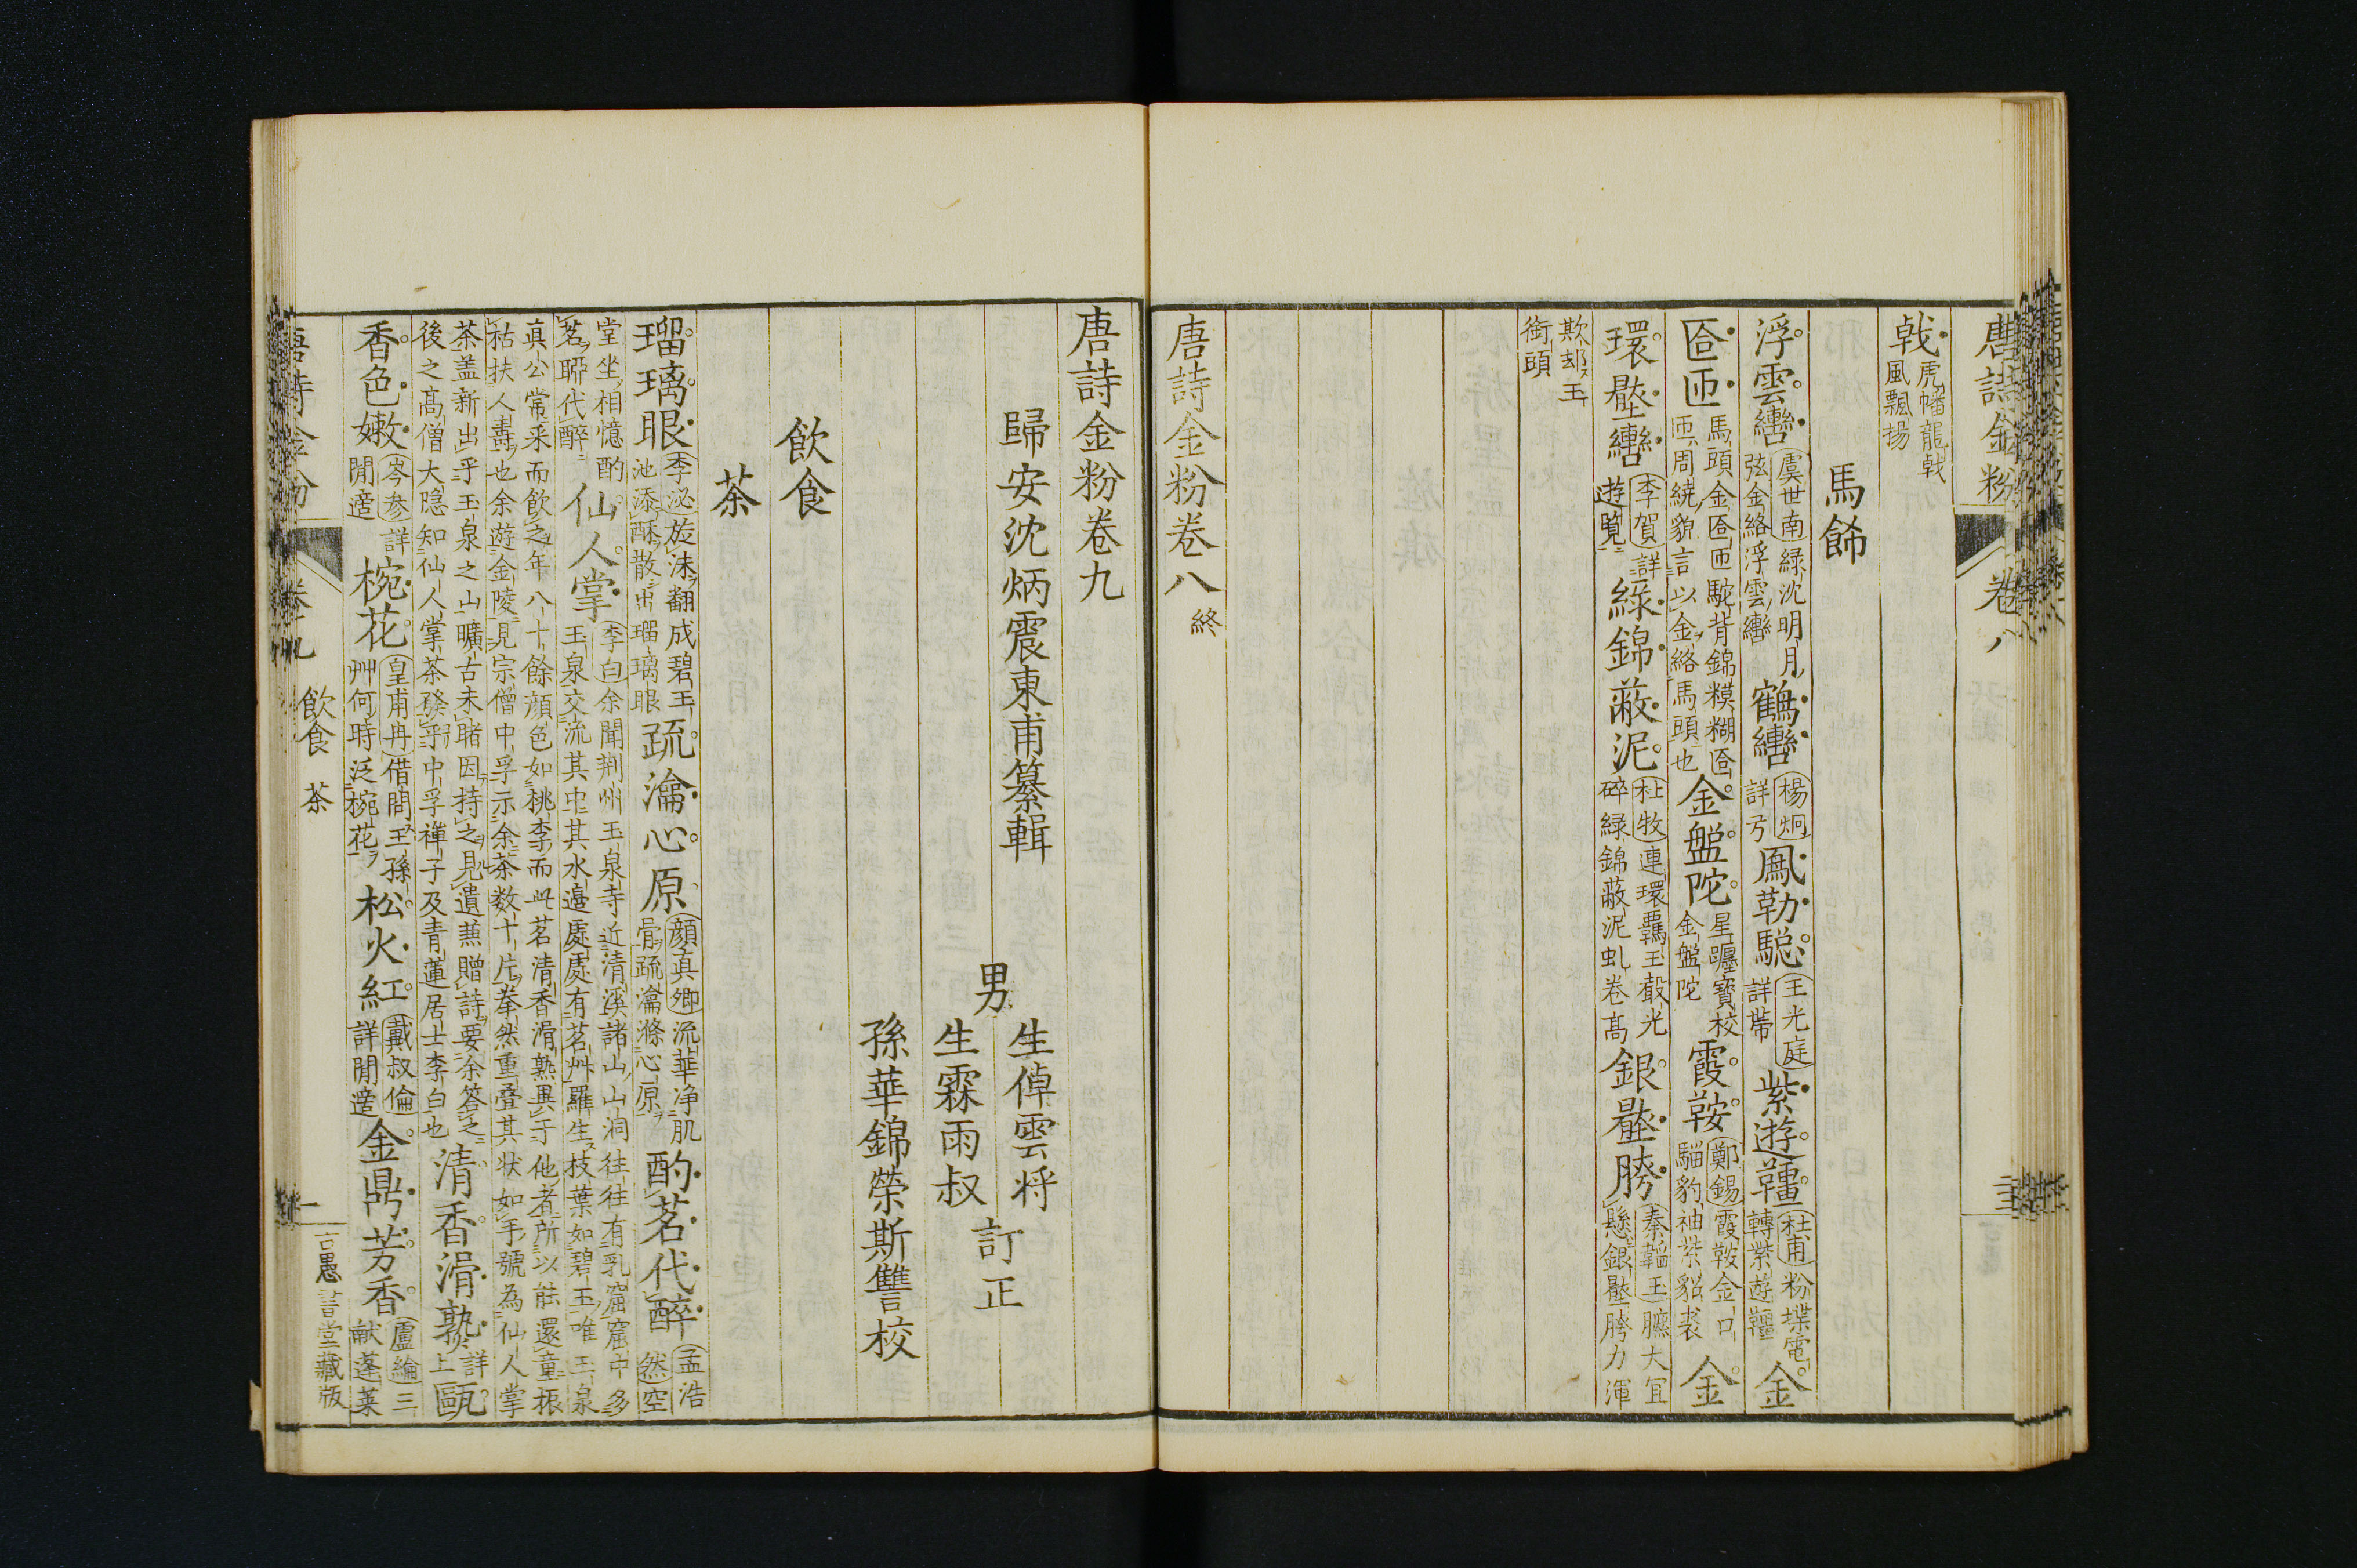 唐詩金粉
卷八
戟虎幡龍戟風飄揚
馬飾
浮雲轡虞世南綠沈明月弦金絡浮雲轡鶴轡楊炯詳弓鳳勒驄王光庭詳帶紫遊韁杜甫粉堞電轉紫遊韁金
匼匝馬頭金匼匝駝背錦糢糊匼匝周繞貌言以金絡馬頭也金盤陀星躔寶校金盤陀霞鞍鄭錫霞鞍金口騮豹袖紫貂裘金
環壓轡李賀詳遊覧綠錦蔽泥杜牧連環羈玉轂光碎綠錦蔽泥虬卷高銀壓胯秦韜玉臕大宜懸銀壓胯力渾
欺却玉銜頭
唐詩金粉卷八終
唐詩金粉卷九
歸安沈炳震東甫纂輯
男
生倬雲將
生霖雨叔
訂正
孫華錦榮斯讐校
飲食
茶
瑠璃眼李泌旋沫翻成碧玉池添酥散出瑠璃眼疏瀹心原顔真卿流華净肌骨疏瀹滌心原酌茗代醉孟浩然空
堂坐相憶酌茗聊代醉仙人掌李白余聞荆州玉泉寺近清溪諸山山洞往往有乳窟窟中多玉泉交流其中其水邉處處有茗艸羅生枝葉如碧玉唯玉泉
真公常采而飲之年八十餘顔色如桃李而此茗清香滑熟異于他者所以能還童振枯扶人壽也余遊金陵見宗僧中孚示余茶数十片拳然重疊其状如手號為仙人掌
茶盖新出乎玉泉之山曠古未睹因持之見遺兼贈詩要余答之後之高僧大隠知仙人掌茶發乎中孚禪子及青蓮居士李白也清香滑熟詳上甌
香色嫩岑参詳閒適椀花皇甫冉借問王孫艸何時泛椀花松火紅戴叔倫詳閒適金鼎芳香盧綸三献蓬萊
唐詩金粉
卷九
飲食
茶
一
書堂藏版